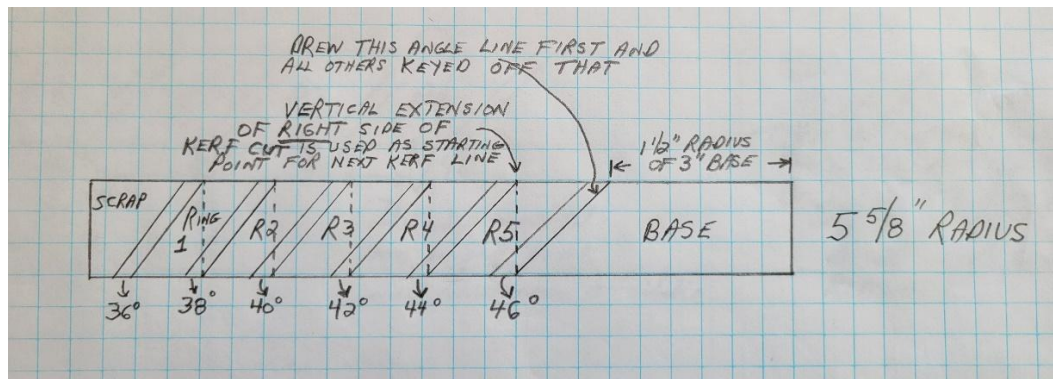 DREW THIS ANGLE LINE FIRST AND
ALL OTHERS KEYED OFF THAT
VERTICAL EXTENSION
OF RIGHT SIDE OF
KERF CUT IS USED AS STARTING
POINT FOR NEXT KERF LINE
1 1/2" RADIUS
OF 3" BASE
SCRAP
RING
1
R2
R3
R4
R5
BASE
5 5/8" RADIUS
36°
38°
40°
42°
44°
46°